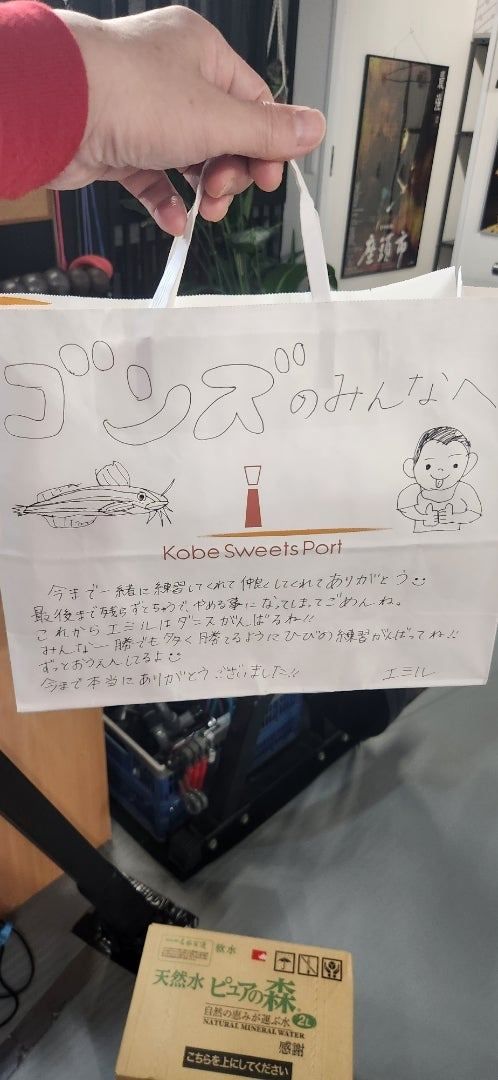 座頭市
ゴンズのみんなへ
Kobe Sweets Port
今まで一緒に練習してくれて仲良くしてくれてありがとう
最後まで残らずとちゅうで、やめる事になってしまってごめんね。
これからエミルはダンスがんばるね!!
みんな一勝でも多く勝てるようにひびの練習がんばってね!!
ずっとおうえんしてるよ
今まで本当にありがとうございました!!
エミル
軟水
天然水 ピュアの森
自然の恵みが運ぶ水 2L
NATURAL MINERAL WATER
感謝
こちらを上にしてください